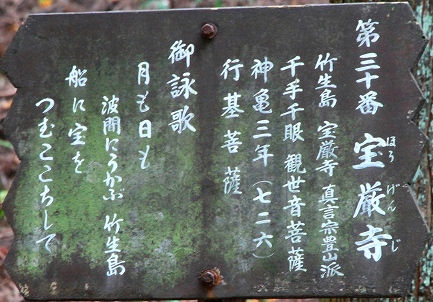 第三十番 宝厳寺
ほうげんじ
竹生島 宝厳寺 真言宗豊山派
千手千眼 観世音菩薩
神亀三年(七二六)
行基菩薩
御詠歌
月も日も
波間にうかぶ 竹生島
船に宝を
つむここちして